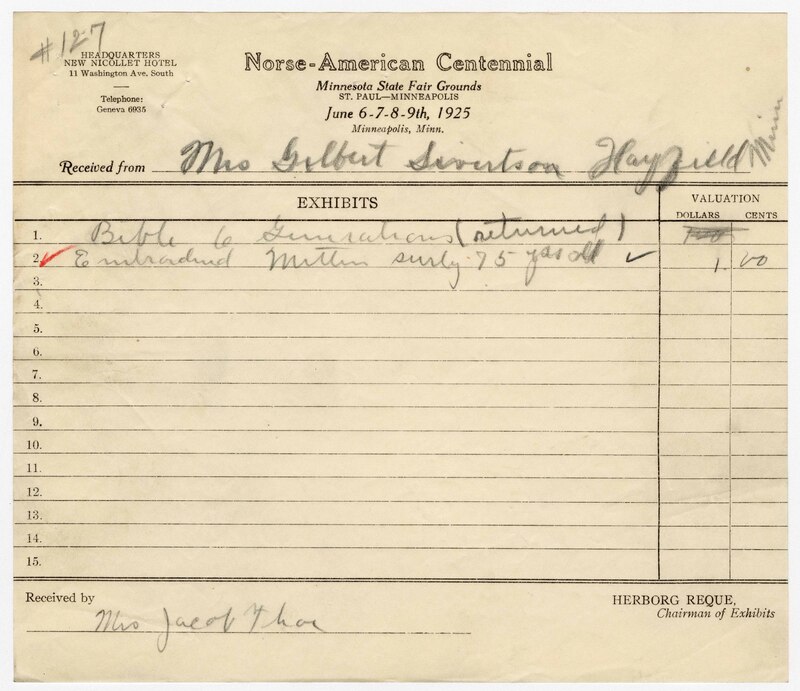 #127
HEADQUARTERS
NEW NICOLLET HOTEL
11 Washington Ave. South
Telephone:
Geneva 6935
Norse-American Centennial
Minnesota State Fair Grounds
ST. PAUL—MINNEAPOLIS
June 6-7-8-9th, 1925
Minneapolis, Minn.
Received from Mrs Gilbert Sivertson Hayfield Minn
EXHIBITS
VALUATION
DOLLARS CENTS
1. Bible 6 Generations (returned)
2. Embroidered Mitten 75 yrs old ✓ 1 00
3.
4.
5.
6.
7.
8.
9.
10.
11.
12.
13.
14.
15.
Received by
Mrs Jacob Thoe
HERBORG REQUE,
Chairman of Exhibits